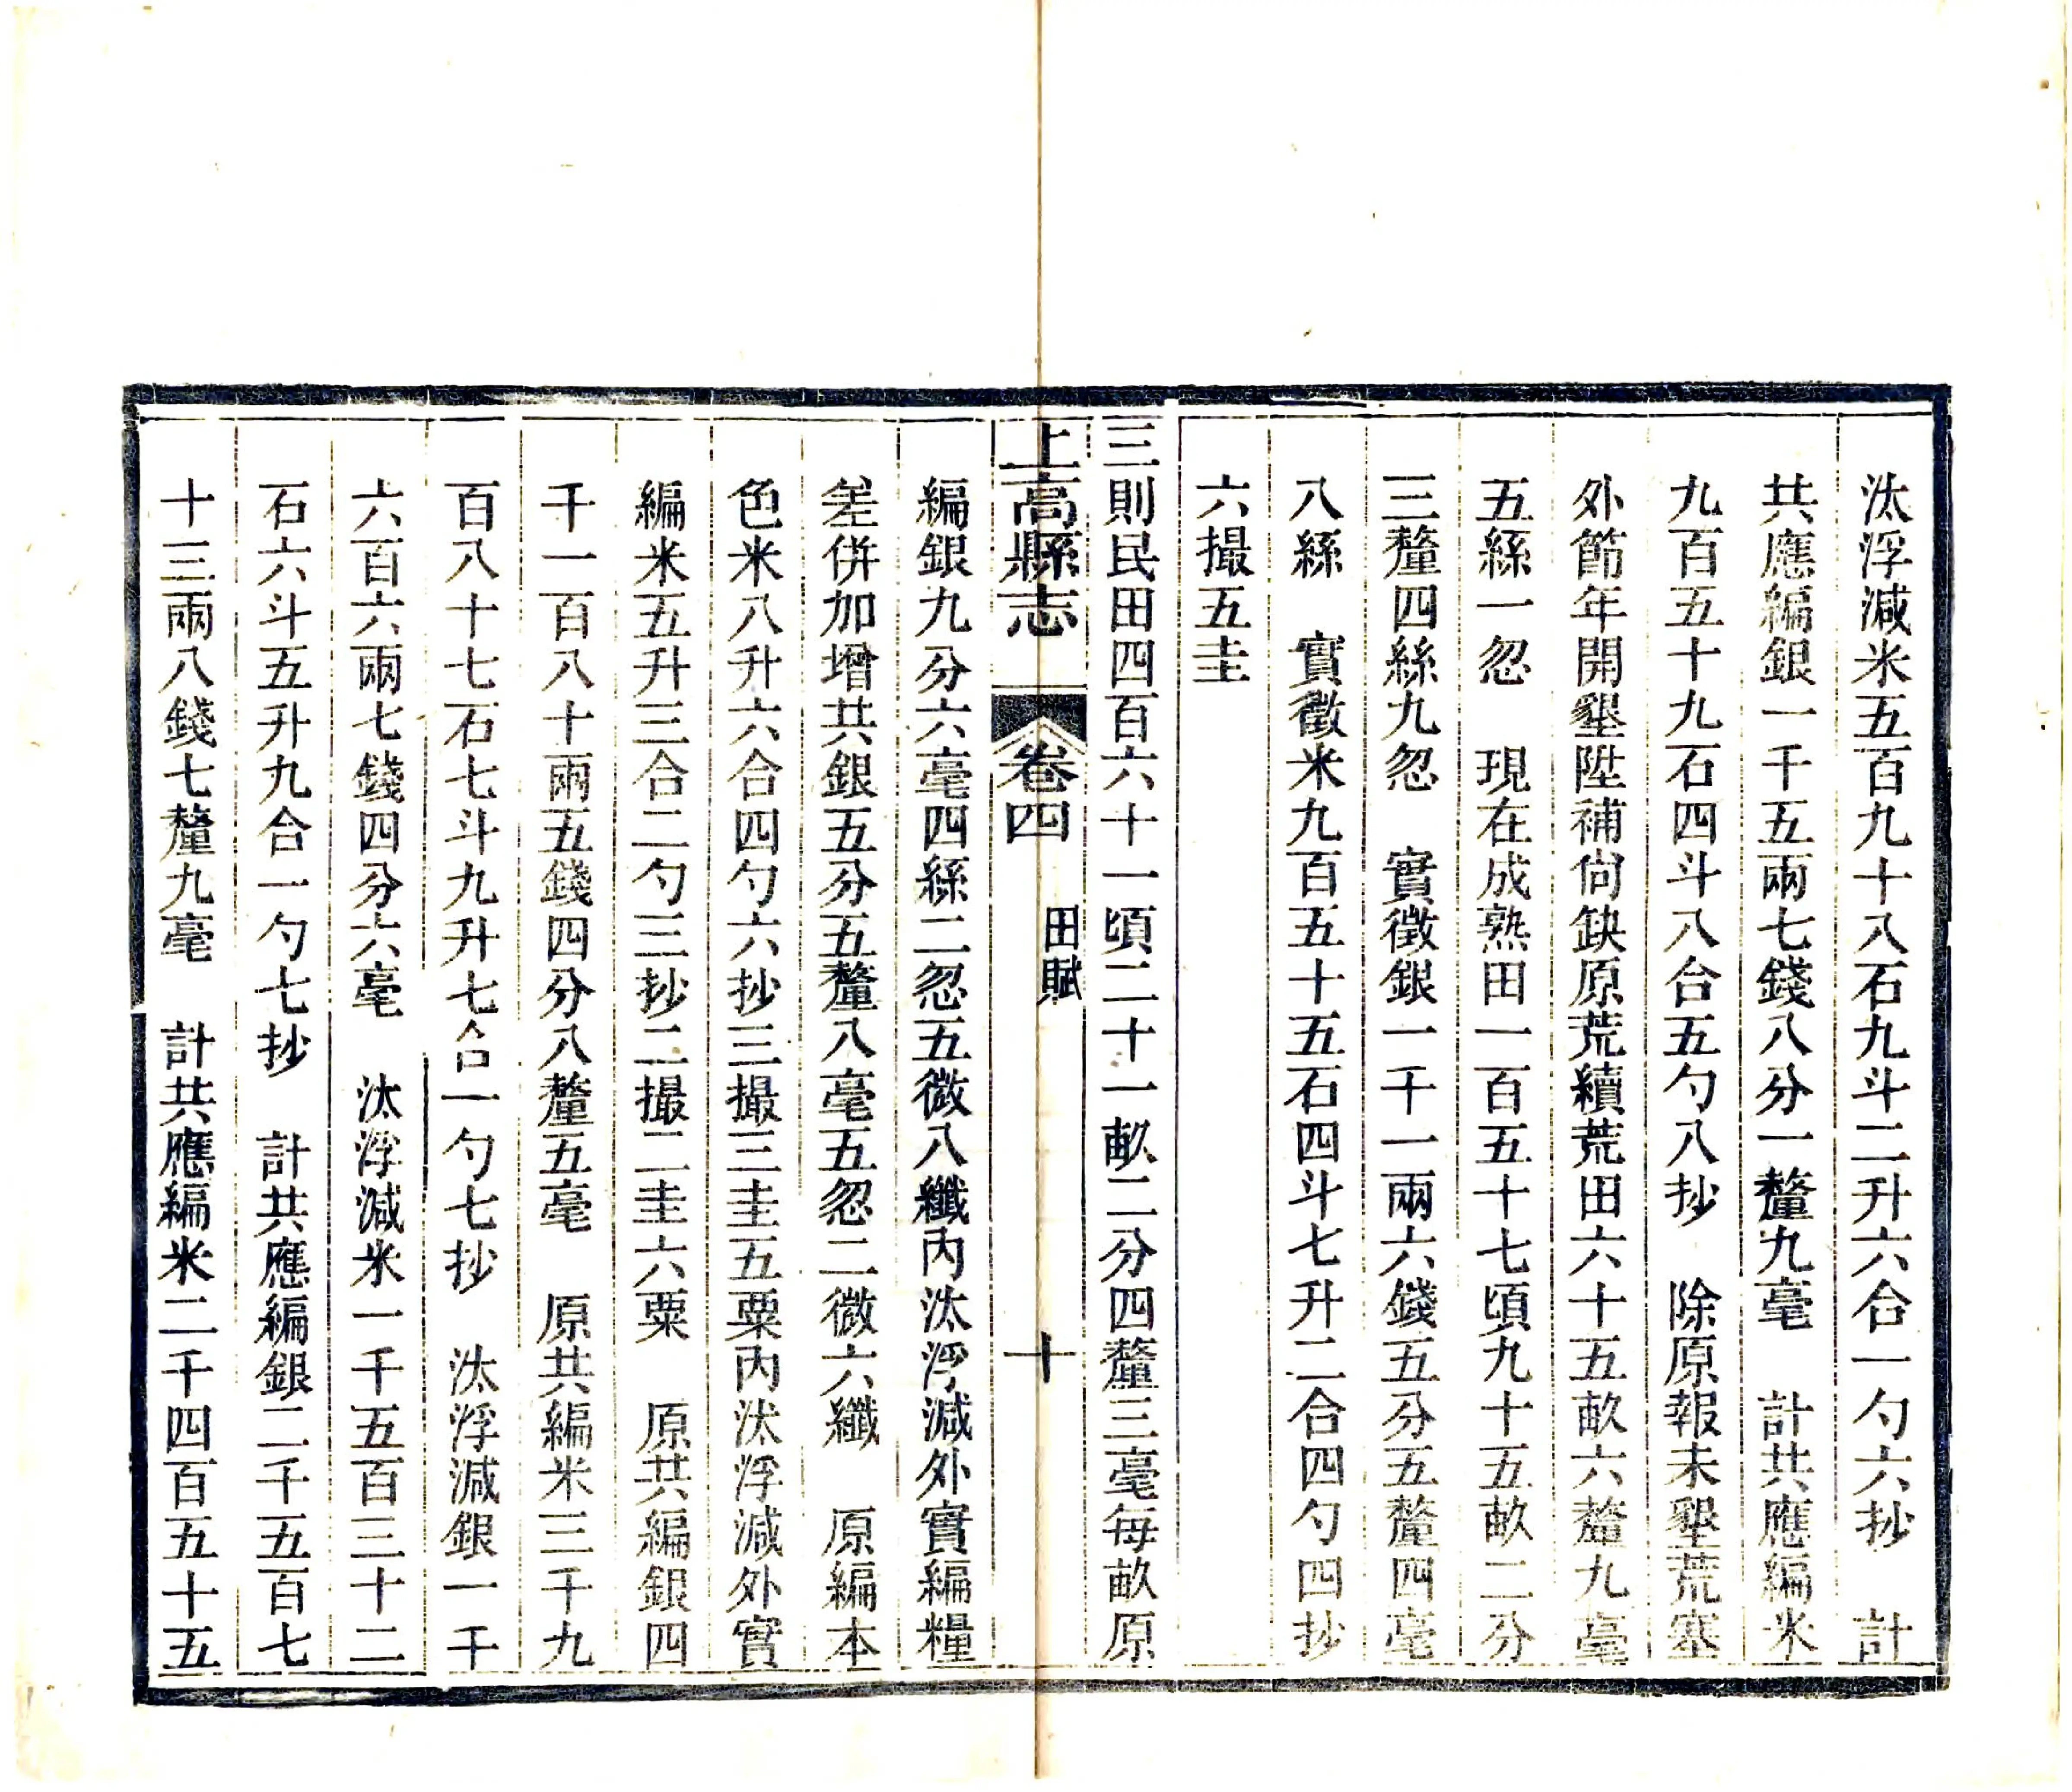 汰浮減米五百九十八石九斗二升六合一勺六抄　計
共應編銀一千五兩七錢八分一釐九毫　計共應編米
九百五十九石四斗八合五勺八抄　除原報未墾荒塞
外節年開墾陞補尙缺原荒續荒田六十五畝六釐九毫
五絲一忽　現在成熟田一百五十七頃九十五畝二分
三釐四絲九忽　實徵銀一千一兩六錢五分五釐四毫
八絲　實徵米九百五十五石四斗七升二合四勺四抄
六撮五圭
三則民田四百六十一頃二十一畝二分四釐三毫每畝原
上高縣志　卷四　田賦　十
編銀九分六毫四絲二忽五微八纖內汰浮減外實編糧
差併加增共銀五分五釐八毫五忽二微六纖　原編本
色米八升六合四勺六抄三撮三圭五粟內汰浮減外實
編米五升三合二勺三抄二撮二圭六粟　原共編銀四
千一百八十兩五錢四分八釐五毫　原共編米三千九
百八十七石七斗九升七合一勺七抄　汰浮減銀一千
六百六兩七錢四分六毫　汰浮減米一千五百三十二
石六斗五升九合一勺七抄　計共應編銀二千五百七
十三兩八錢七釐九毫　計共應編米二千四百五十五